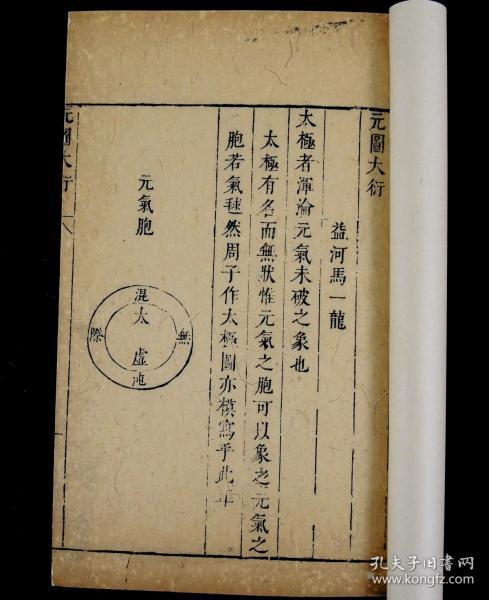 元圖大衍
益河馬一龍
太極者渾淪元氣未破之象也
太極有名而無狀惟元氣之胞可以象之元氣之
胞若氣毬然周子作太極圖亦模寫乎此耳
元氣胞
混
太虛
沌
無
際
元圖大衍
八
孔夫子旧书网
www.kongfz.com